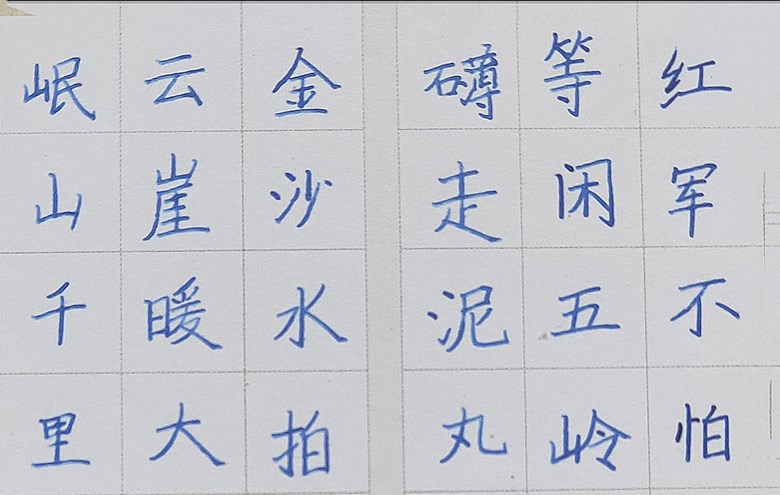 红军不怕
等闲五岭
礴走泥丸
金沙水拍
云崖暖大
岷山千里